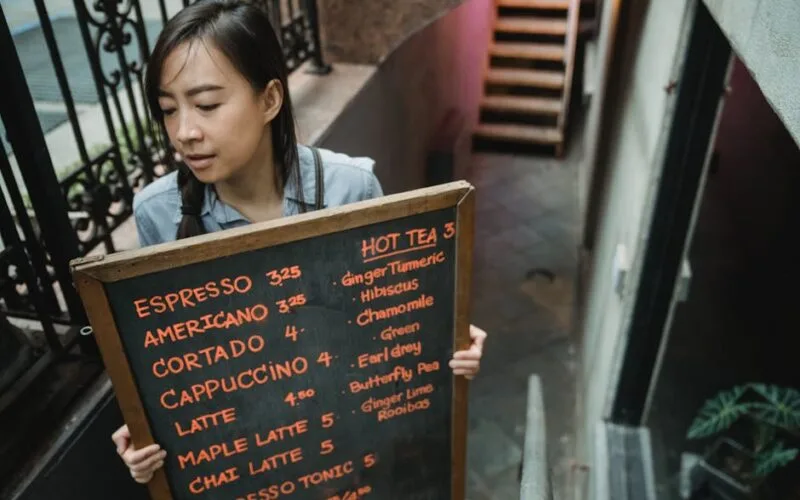 ESPRESSO 3.25
AMERICANO 3.25
CORTADO 4.
CAPPUCCINO 4.
LATTE 4.50
MAPLE LATTE 5
CHAI LATTE 5
ESSO TONIC 5
HOT TEA 3
· Ginger Turmeric
· Hibiscus
· Chamomile
· Green
· Earl Grey
· Butterfly Pea
· Ginger Lime
Rooibos